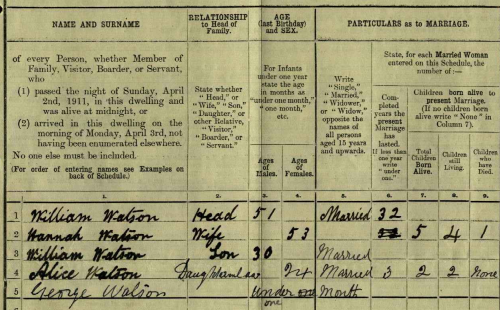 NAME AND SURNAME
RELATIONSHIP to Head of Family.
AGE (last Birthday) and SEX.
PARTICULARS as to MARRIAGE.
of every Person, whether Member of
Family, Visitor, Boarder, or Servant,
who
(1) passed the night of Sunday, April
2nd, 1911, in this dwelling and
was alive at midnight, or
(2) arrived in this dwelling on the
morning of Monday, April 3rd, not
having been enumerated elsewhere.
No one else must be included.
(For order of entering names see Examples on
back of Schedule.)
State whether
"Head," or
"Wife," "Son,"
"Daughter," or
other Relative,
"Visitor,"
"Boarder," or
"Servant."
For Infants
under one year
state the age
in months as
"under one month,"
"one month,"
etc.
Ages of Males.
Ages of Females.
Write
"Single,"
"Married,"
"Widower,"
or "Widow,"
opposite the
names of
all persons
aged 15 years
and upwards.
State, for each Married Woman
entered on this Schedule, the
number of :—
Completed years the present Marriage has lasted.
If less than one year write "under one."
Children born alive to
present Marriage.
(If no children born
alive write "None" in
Column 7).
Total Children Born Alive.
Children still Living.
Children who have Died.
1. 2. 3. 4. 5. 6. 7. 8. 9.
1 William Watson Head 51 Married 32
2 Hannah Watson Wife 53 5 4 1
3 William Watson Son 30 Married
4 Alice Watson Daughter in law 24 Married 3 2 2 None
5 George Watson Under one Month